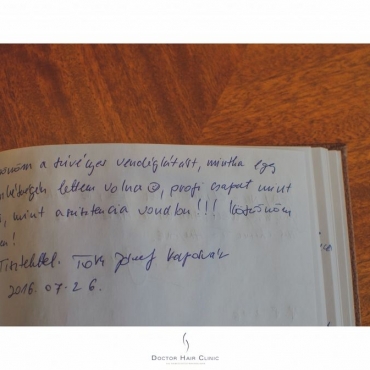 a szívélyes vendéglátást, mintha egy
lettem volna, profi csapat mint
, mint asszisztencia vonalon!!! Köszönöm
!
Tisztelettel. Tóth József
2016.07.26.
DOCTOR HAIR CLINIC